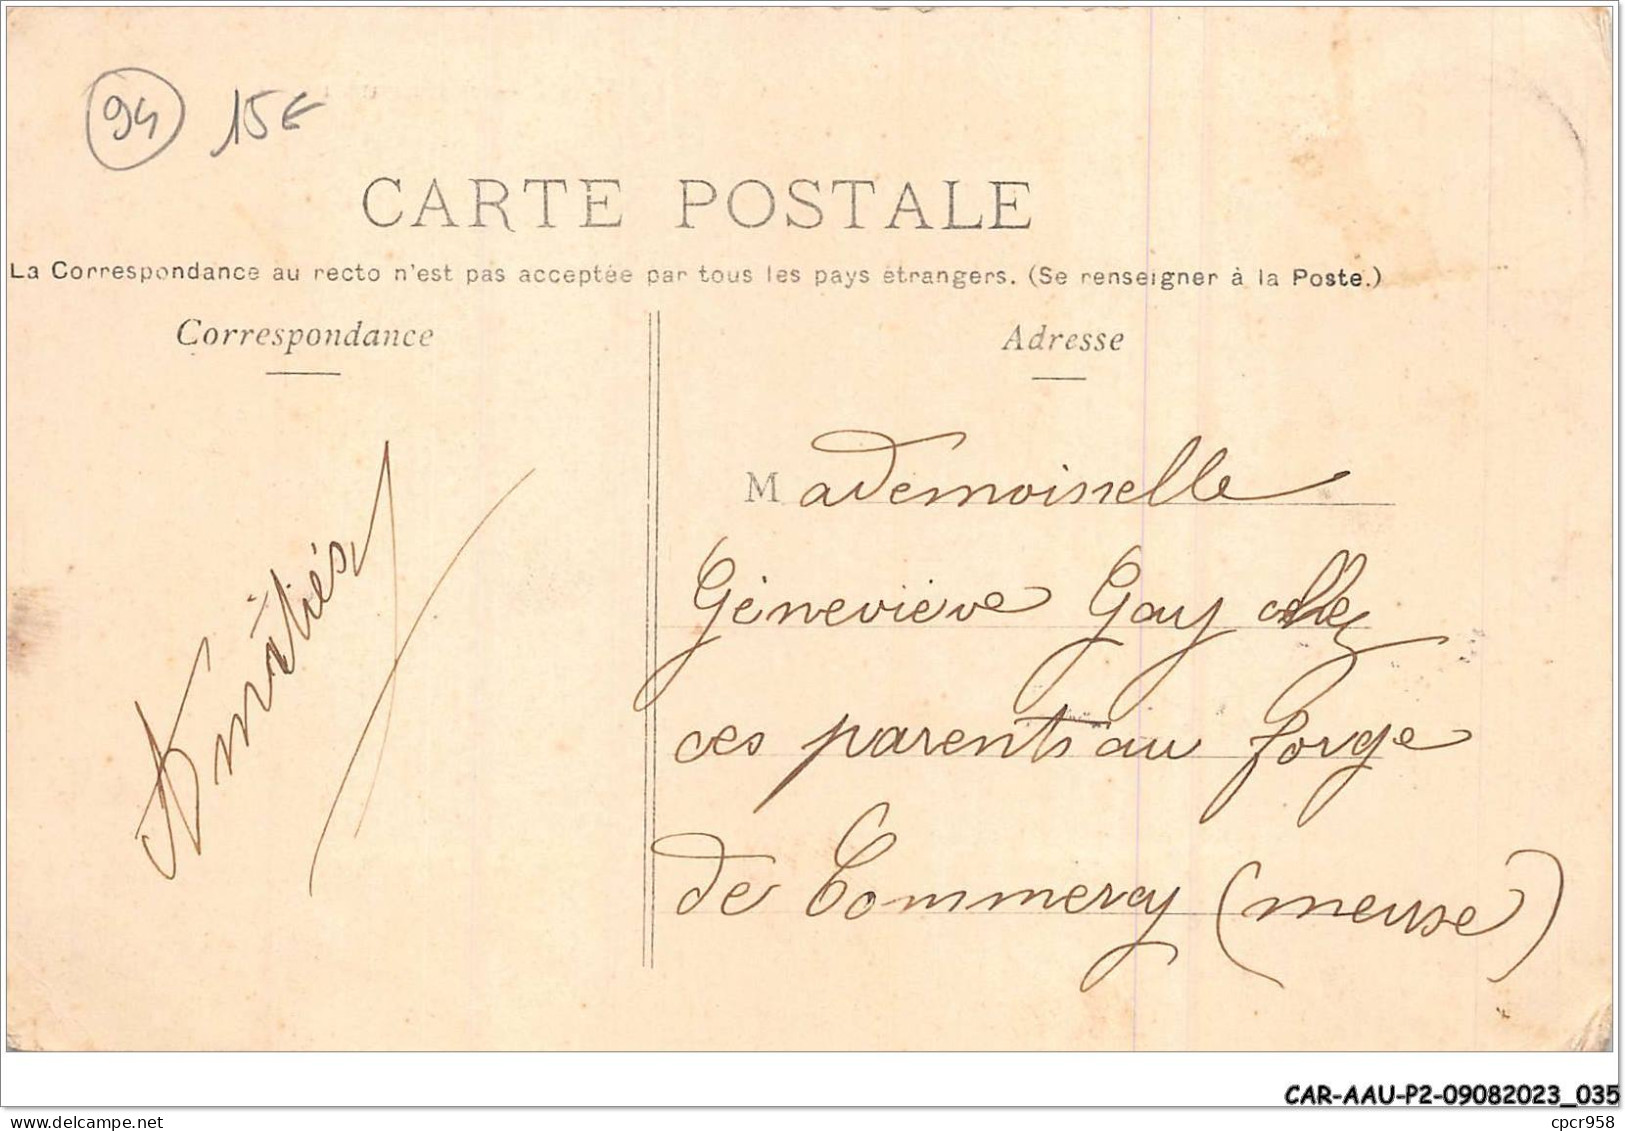 94 15€
CARTE POSTALE
La Correspondance au recto n'est pas acceptée par tous les pays étrangers. (Se renseigner à la Poste.)
Correspondance
Adresse
Amitiés
Mademoiselle
Géneviève Gay chez
ces parents au forge
de Commercy (meuse)
CAR-AAU-P2-09082023_035
delcampe.net
cpcr958